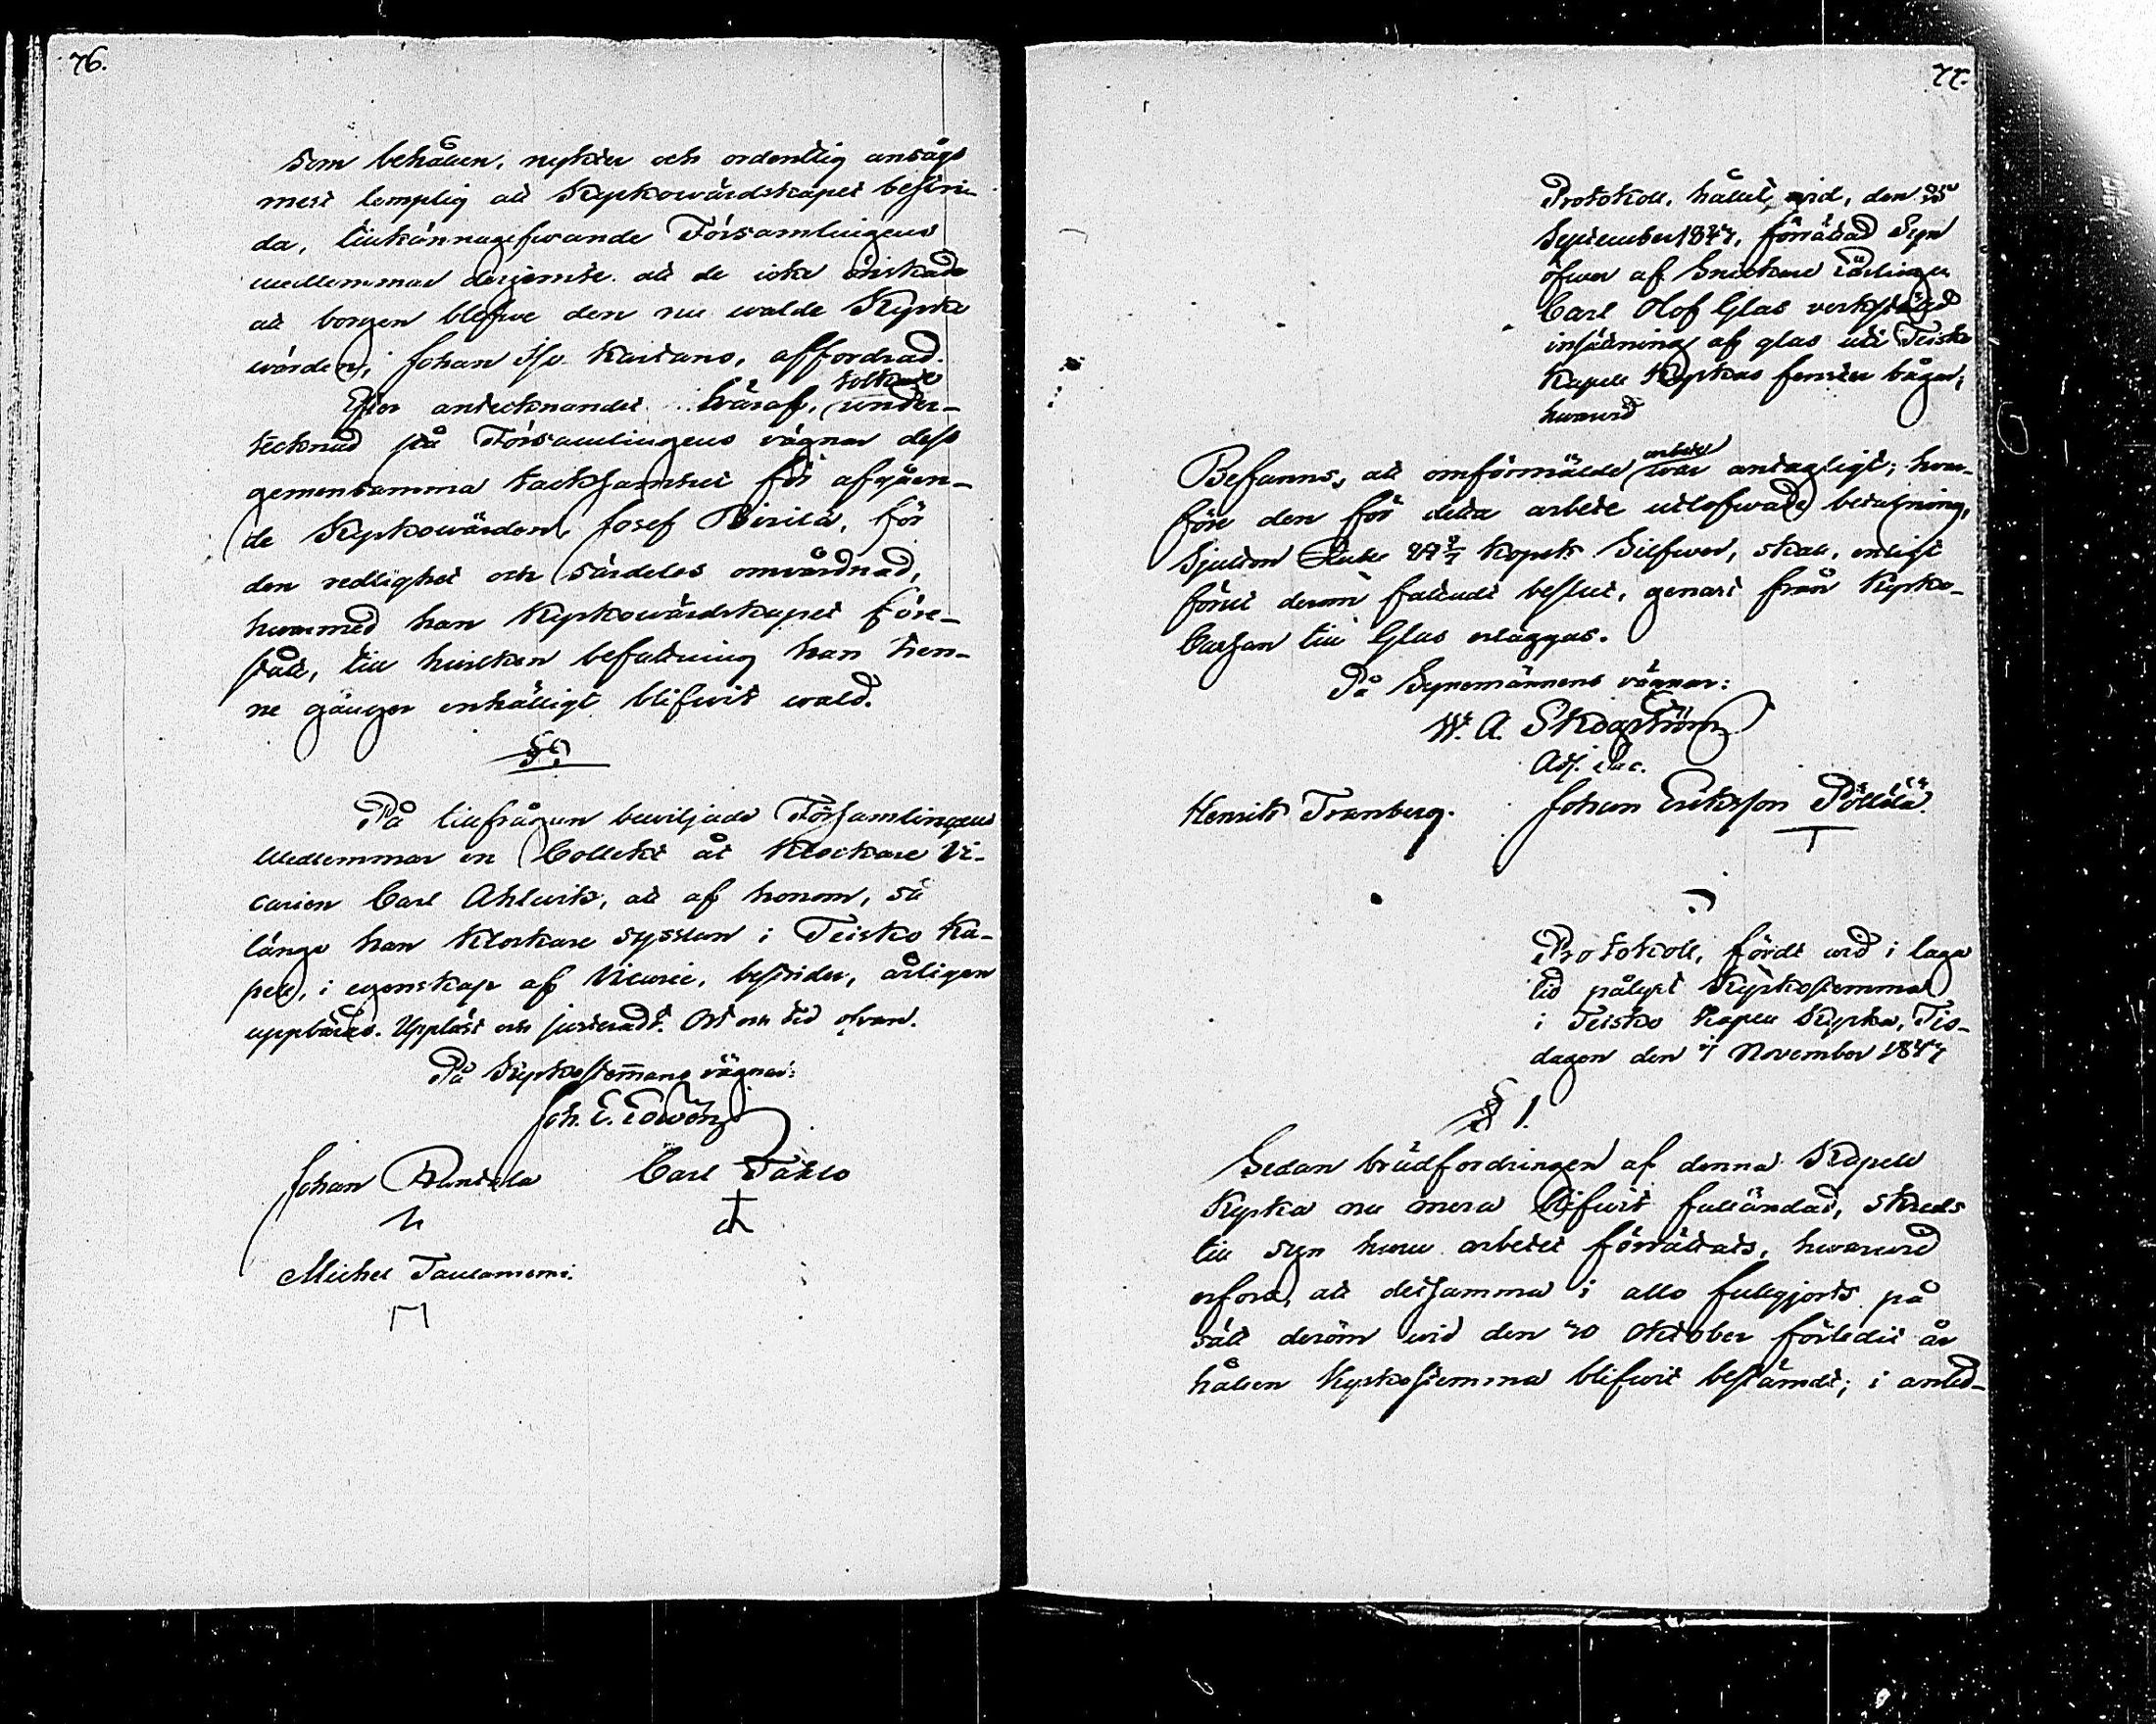 76.
som behållen, nykter och ordentlig ansågs
mest lämplig att Kyrkowärdskapet bestri-
da, tillkännagifwande Församlingens
medlemmar derjemte att de icke önskade
att borgen blefwe den nu walde Kyrko
wärden, Johan Kaitans, affordrad.
Efter antecknandet häraf, tolkade under-
tecknad på Församlingens vägnar dess
gemensamma tacksamhet för afgåen-
de Kyrkowärden Josef Pirilä, för
den redlighet och särdeles omvårdnad,
hwarmed han Kyrkowärdskapet före-
stått, till hwilken befattning han tren-
ne gånger enhälligt blifwit wald.
§
På tillfrågan bewiljade Församlingens
Medlemmar en Collekt åt Klockare Vi-
carien Carl Ahlqvist, att af honom, så
länge han Klockare sysslan i Teisko Ka-
pell, i egenskap af Vicarie, bestrider, årligen
uppbäras. Uppläst och justeradt. Ort och tid ofvan.
På Kyrkostemmans vägnar:
Joh. E.
Johan Carl
Michel Taulaniemi.
77.
Protokoll, hållit wid, den
September 1847, förrättad Syn
öfwer af Snickare Lärlingen
Carl Olof Glas verkställd
insättning af glas uti Teisko
Kapell Kyrkas fenster bågar;
hwarwid
Befanns, att omförmälde arbete war antagligt; hwar-
före den för detta arbete utlofwade betalning,
Sjutton Rubel kopek Silfwer, skall, enligt
förut derom fattadt beslut, genast från Kyrko-
Cassan till Glas erläggas.
På Synemännens vägnar:
W. A. Skogström
Adj. Sac.
Henrik Tranberg. Johan Eriksson Pöllälä
Protokoll, fördt wid i laga
tid pålyst Kyrkostemma
i Teisko Kapell Kyrka, Tis-
dagen den November 1847
§ 1.
Sedan brädfordringen af denna Kapell
Kyrka nu mera blifwit fulländad, skreds
till syn huru arbetet förrättats, hwarwid
erfors, att detsamma i allo fullgjorts på
sätt derom wid den 20 Oktober förledit år
hållen Kyrkostemma blifwit bestämdt; i anled-